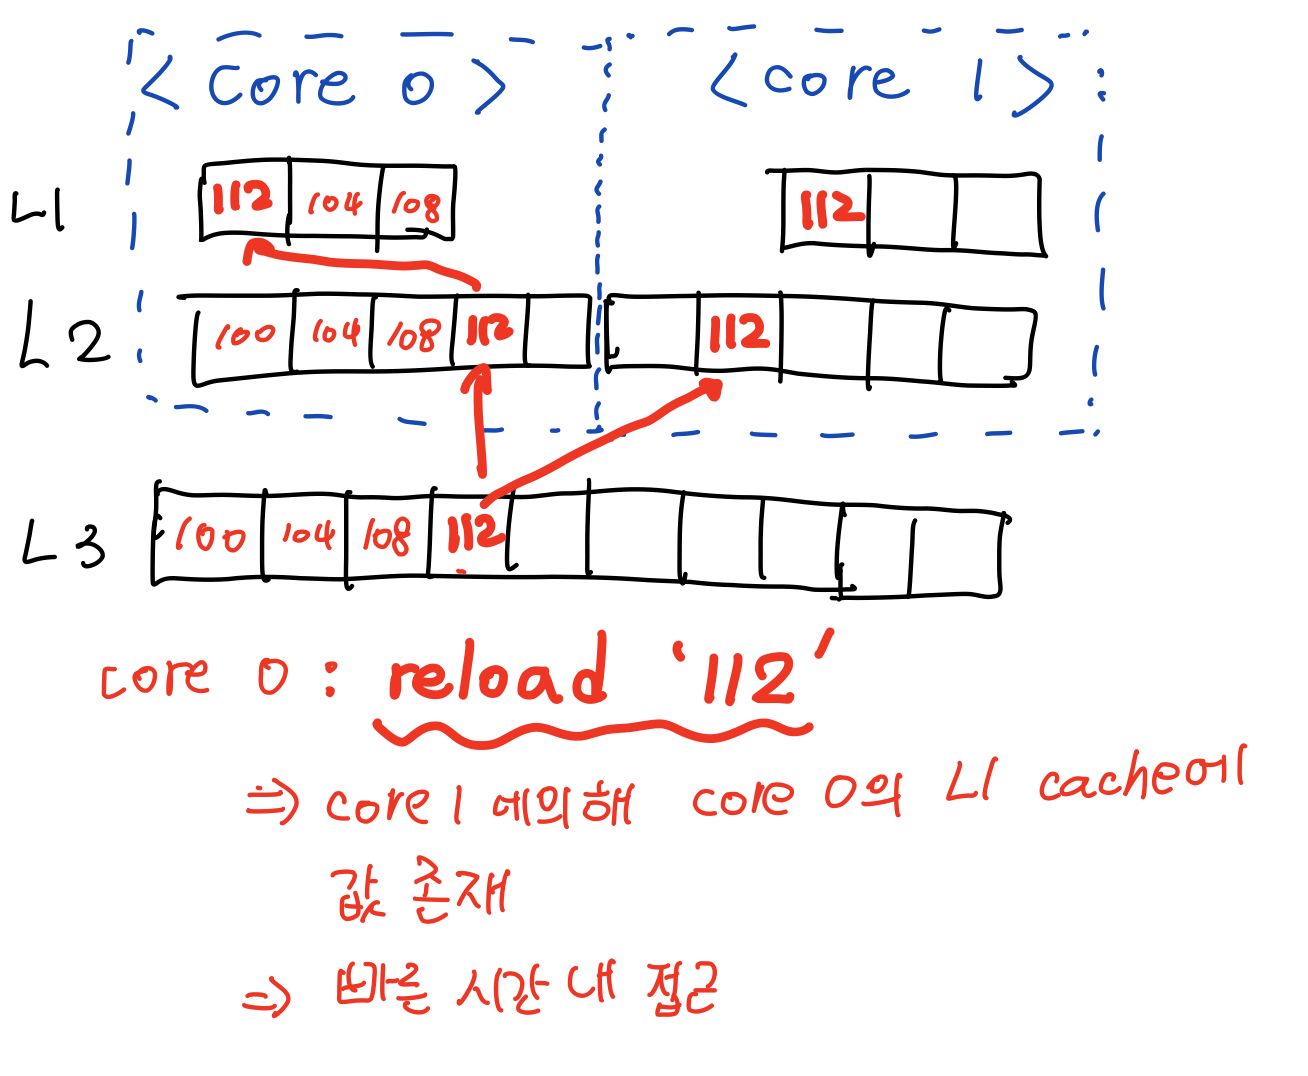 <core 0> <core 1>
L1 112 104 108 112
L2 100 104 108 112 112
L3 100 104 108 112
core 0 : reload '112'
⇒ core 1 에의해 core 0의 L1 cache에
값 존재
⇒ 빠른 시간 내 접근